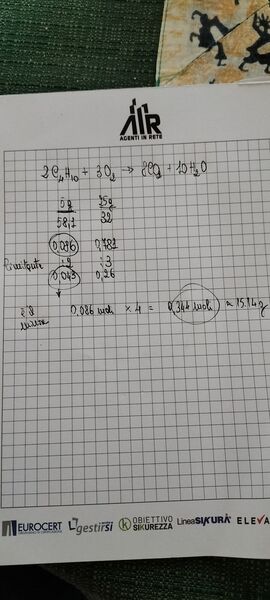 AIR
AGENTI IN RETE
2C₄H₁₀ + 3O₂ → 8CO₂ + 10H₂O
5g 25g
58,1 32
0,086 0,781
:2 :3
0,043 0,26
è il
minore
0,086 moli × 4 = 0,344 moli ≈ 15.14 g
EUROCERT gestirsi OBIETTIVO SIKUREZZA LineaSIKURA ELEVA